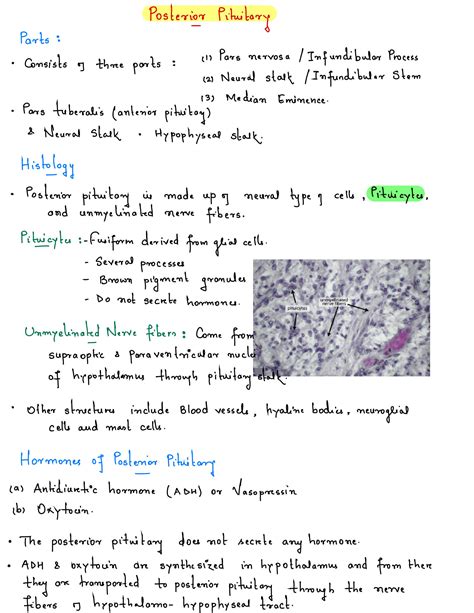 Posterior Pituitary
Parts :
• Consists of three parts : (1) Pars nervosa / Infundibular Process
(2) Neural stalk / Infundibular Stem
(3) Median Eminence.
• Pars tuberalis (anterior pituitary)
& Neural Stalk • Hypophyseal stalk.
Histology
• Posterior pituitary is made up of neural type of cells, Pituicytes,
and unmyelinated nerve fibers.
Pituicytes :- Fusiform derived from glial cells.
- Several processes
- Brown pigment granules
- Do not secrete hormones.
pituicytes
unmyelinated
nerve fibers
Unmyelinated Nerve fibers : Come from
supraoptic & paraventricular nuclei
of hypothalamus through pituitary stalk.
• Other structures include Blood vessels, hyaline bodies, neuroglial
cells and mast cells.
Hormones of Posterior Pituitary
(a) Antidiuretic hormone (ADH) or Vasopressin
(b) Oxytocin.
• The posterior pituitary does not secrete any hormone.
• ADH & oxytocin are synthesized in hypothalamus and from there
they are transported to posterior pituitary through the nerve
fibers of hypothalamo-hypophyseal tract.